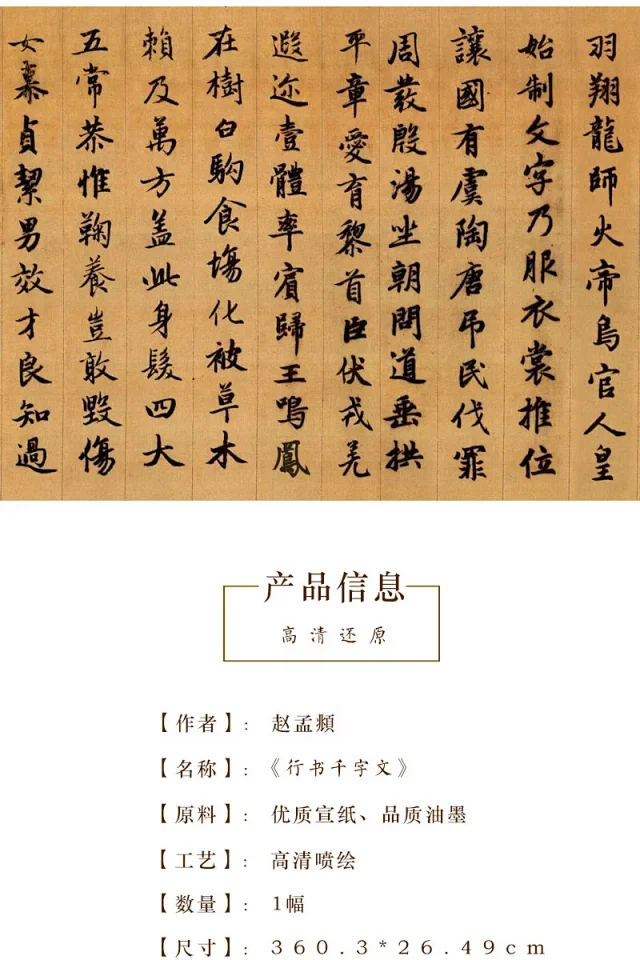 羽翔龍師火帝鳥官人皇
始制文字乃服衣裳推位
讓國有虞陶唐吊民伐罪
周發殷湯坐朝問道垂拱
平章愛育黎首臣伏戎羌
遐迩壹體率賓歸王鳴鳳
在樹白駒食場化被草木
賴及萬方盖此身髮四大
五常恭惟鞠養豈敢毀傷
女慕貞絜男效才良知過
产品信息
高清还原
【作者】： 赵孟頫
【名称】：《行书千字文》
【原料】： 优质宣纸、品质油墨
【工艺】： 高清喷绘
【数量】： 1幅
【尺寸】： 360.3*26.49cm